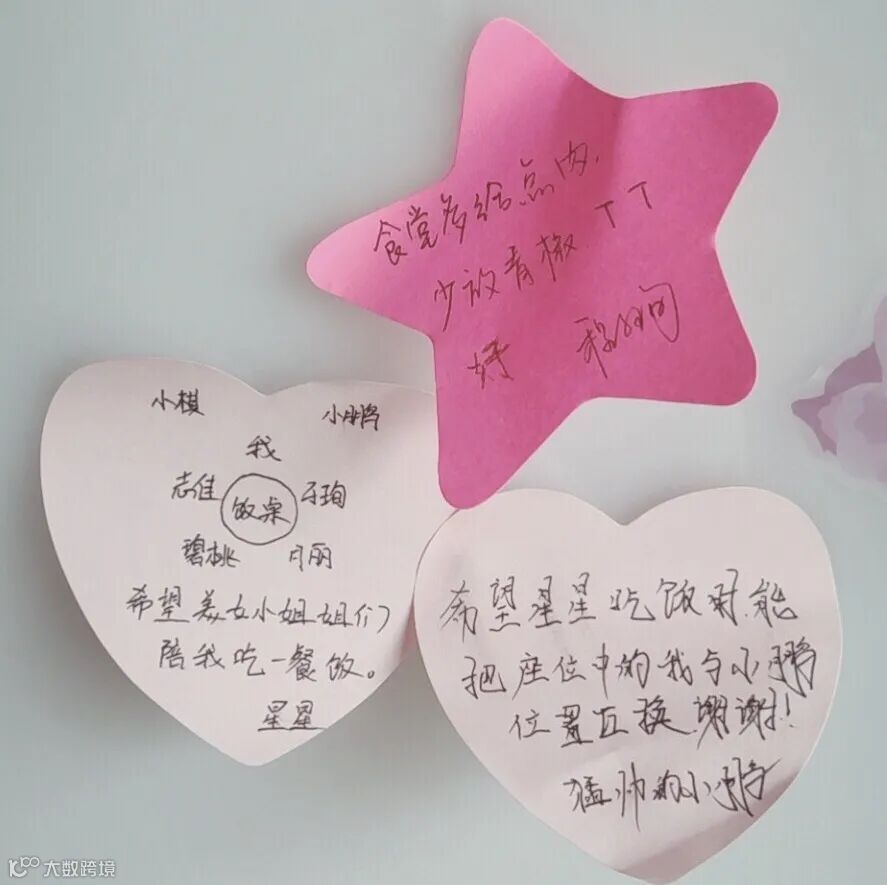 食堂多给点肉,
少放青椒.TT
小棋 小鹏
我
志佳 饭桌 子珣
碧桃 月丽
希望美女小姐姐们
陪我吃一餐饭。
星星
希望星星吃饭时,能
把座位中的我与小鹏
位置互换,谢谢!
猛帅的小鹏
大数跨境